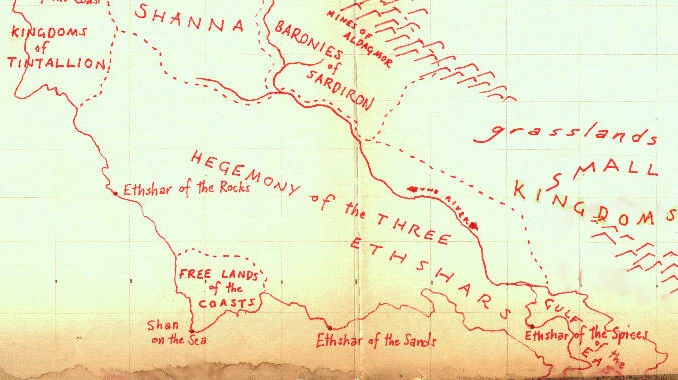 of the Coast
SHANNA
KINGDOMS
of
TINTALLION
BARONIES
of
SARDIRON
MINES OF
ALDAGMOR
grasslands
SMALL
KINGDOMS
HEGEMONY of the THREE
ETHSHARS
THE RIVER
Ethshar of the Rocks
FREE LANDS
of the
COASTS
Shan
on the Sea
Ethshar of the Sands
GULF
of the
Ethshar of the Spices